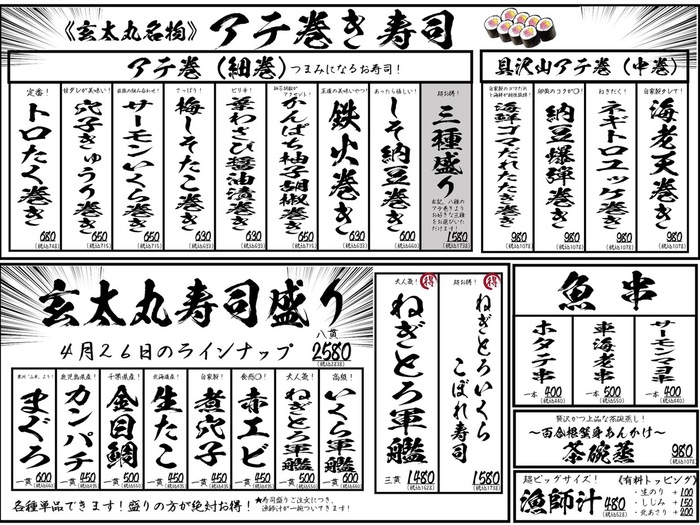 《玄太丸名物》アテ巻き寿司
アテ巻(細巻)つまみになるお寿司!
定番!
トロたく巻き
680
(税込748)
甘ダレが美味い!
穴子きゅうり巻き
650
(税込715)
サーモンいくら巻き
650
(税込715)
さっぱり!
梅しそたこ巻き
630
(税込693)
ピリ辛!
葉わさび醤油漬巻き
630
(税込693)
かんぱち柚子胡椒巻き
650
(税込715)
王道の美味いやつ!
鉄火巻き
630
(税込693)
あったら嬉しい!
しそ納豆巻き
600
(税込660)
超お得!
三種盛り
左記、八種の
アテ巻きより
お好きな三種
をお選びいた
だけます!
1580
(税込1738)
具沢山アテ巻(中巻)
自家製のゴマだれ
と海鮮が相性抜群!
海鮮ゴマだれたたき巻き
980
(税込1078)
卵黄のコクが〇!
納豆爆弾巻き
980
(税込1078)
ねぎだく!
ネギトロユッケ巻き
980
(税込1078)
自家製タレで!
海老天巻き
980
(税込1078)
玄太丸寿司盛り
八貫
2580
(税込2838)
4月26日のラインナップ
豊洲「山幸」より!
まぐろ
一貫 600
(税込660)
鹿児島県産!
カンパチ
一貫 450
(税込495)
千葉県産!
金目鯛
一貫 500
(税込550)
北海道産!
生たこ
一貫 450
(税込495)
自家製!
煮穴子
一貫 450
(税込495)
食感〇!
赤エビ
一貫 450
(税込495)
大人気!
ねぎとろ軍艦
一貫 500
(税込550)
高級!
いくら軍艦
一貫 600
(税込660)
各種単品できます!盛りの方が絶対お得!
★寿司盛りご注文につき、
漁師汁が一椀ついてきます!
得
大人気!
ねぎとろ軍艦
三貫 1480
(税込1628)
得
超お得!
ねぎとろいくら
こぼれ寿司
1580
(税込1738)
魚串
ホタテ串
一本 400
(税込440)
車海老串
一本 500
(税込550)
サーモンマヨ串
一本 400
(税込440)
贅沢かつ上品な茶碗蒸し!
~百合根蟹身あんかけ~
茶碗蒸
980
(税込1078)
超ビッグサイズ!
漁師汁
480
(税込528)
《有料トッピング》
・生のり +100
・しじみ +150
・北あさり +200